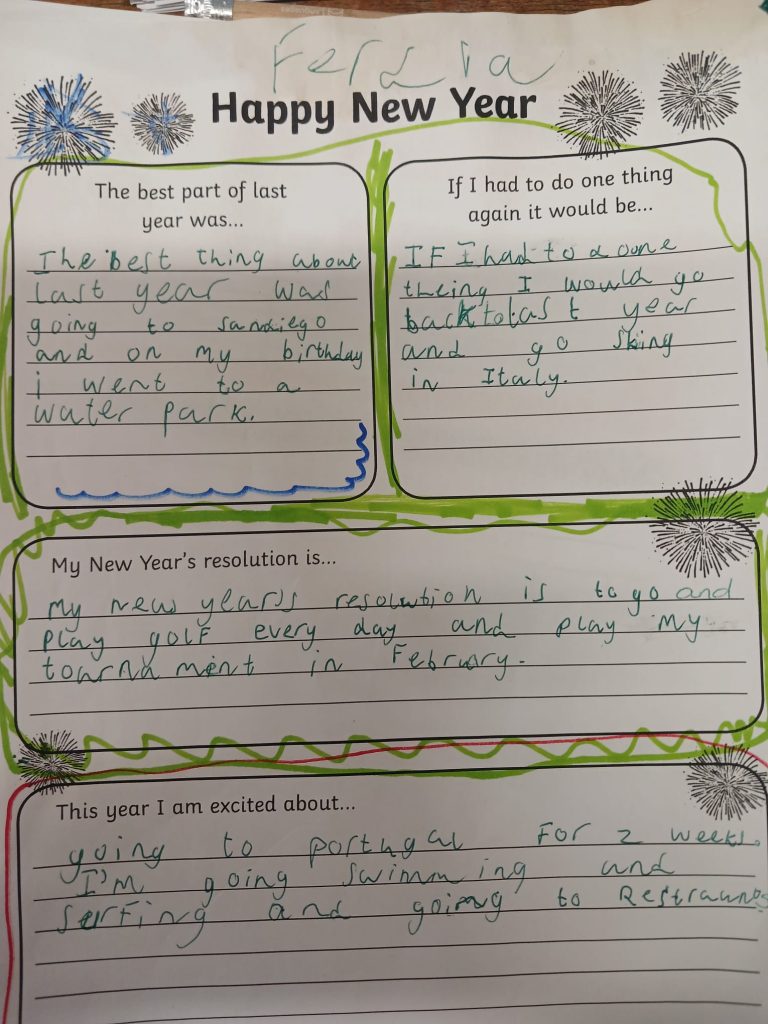 Ferzia
Happy New Year
The best part of last
year was...
The best thing about
last year was
going to sandiego
and on my birthday
i went to a
water park.
If I had to do one thing
again it would be...
IF I had to do one
theing I would go
back to last year
and go sking
in Italy.
My New Year's resolution is...
My new year's resolution is to go and
play golf every day and play my
tournament in February.
This year I am excited about...
going to portugal For 2 weeks.
I'm going swimming and
surfing and going to Restraunts